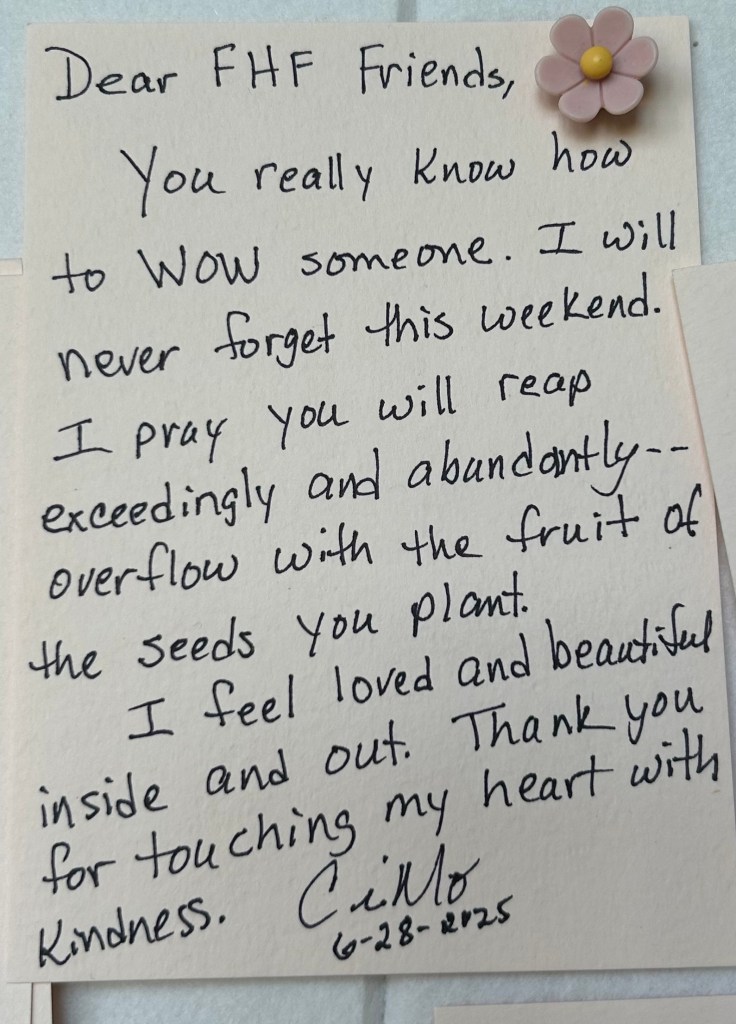 Dear FHF Friends,
You really know how
to WOW someone. I will
never forget this weekend.
I pray you will reap
exceedingly and abundantly--
overflow with the fruit of
the seeds you plant.
I feel loved and beautiful
inside and out. Thank you
for touching my heart with
Kindness.
6-28-2025